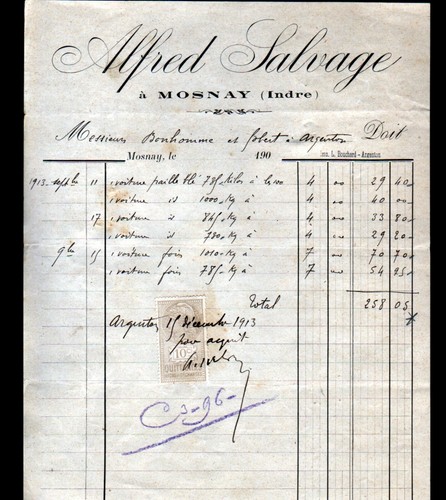 Alfred Salvage
à MOSNAY (Indre)
Messieurs Bonhomme et Jobert à Argenton Doit
Mosnay, le 190 Imp. L. Bouchard - Argenton
1913 septbre 11 1 voiture paille blé 735 kilos à 4 00 29 40
1 voiture id 1000 Kg à 4 00 40 00
17 1 voiture id 845 Kg à 4 00 33 80
1 voiture id 730 Kg à 4 00 29 20
9bre 15 1 voiture foin 1010 Kg à 7 00 70 70
1 voiture foin 775 Kg à 7 00 54 25
Total 258 05
Argenton 15 décembre 1913
10
pour acquit
C3-96-